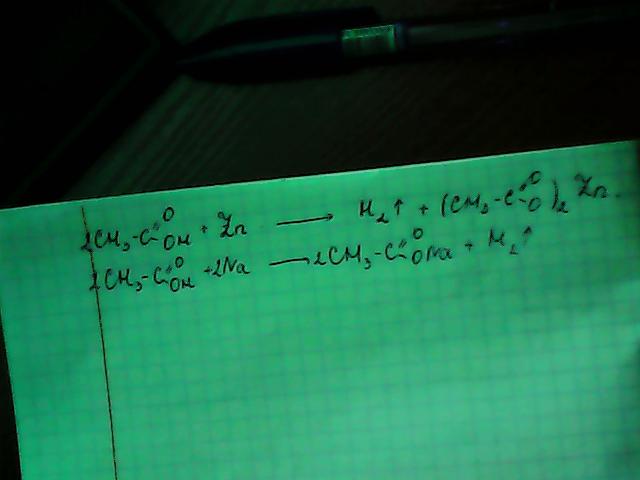 2CH₃-C(=O)OH + Zn ⟶ H₂↑ + (CH₃-C(=O)O)₂Zn.
2CH₃-C(=O)OH + 2Na ⟶ 2CH₃-C(=O)ONa + H₂↑